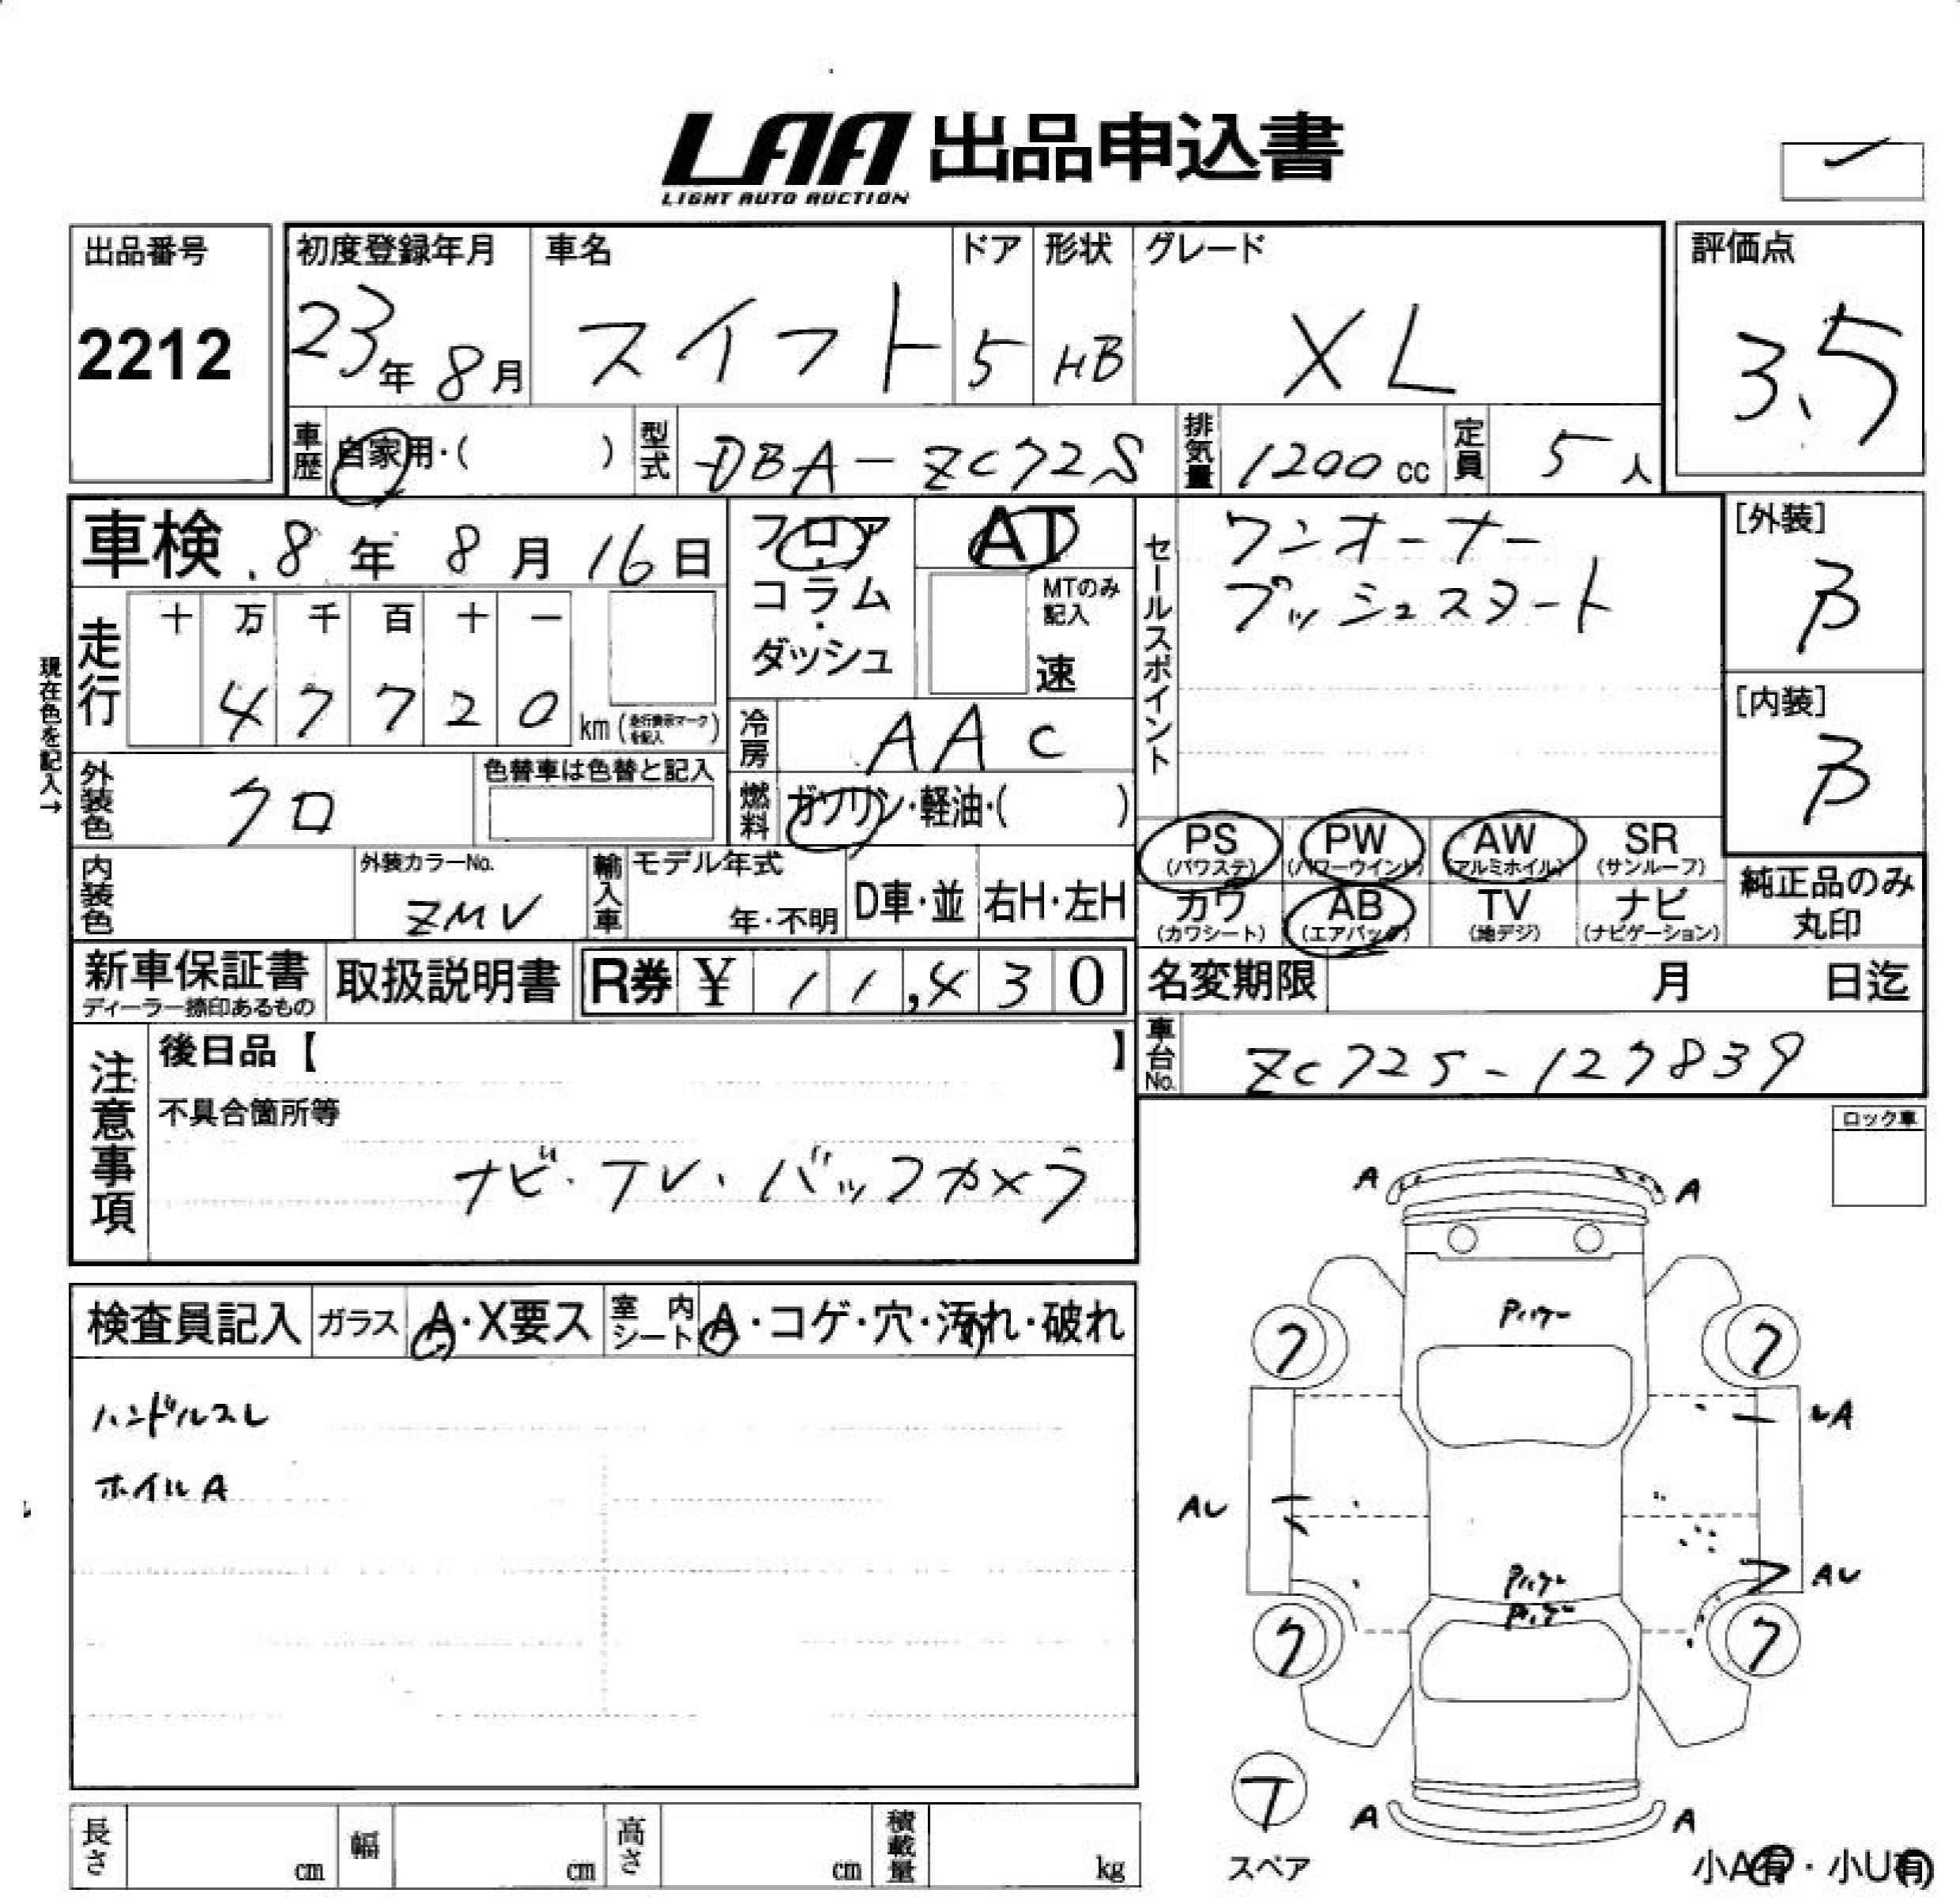 LAA 出品申込書
LIGHT AUTO AUCTION
出品番号
2212
初度登録年月
23年 8月
車名
スイフト
ドア
5
形状
HB
グレード
XL
評価点
3.5
車歴
自家用・( )
型式
DBA-ZC72S
排気量
1200 cc
定員
5 人
車検 8年 8月 16日
フロア・コラム・ダッシュ
AT
MTのみ記入
速
セールスポイント
ワンオーナー
プッシュスタート
[外装]
B
[内装]
B
現在色を記入→
走行
十 万 千 百 十 一
4 7 7 2 0 km (走行換示マークを記入)
冷房
AAC
外装色
クロ
色替車は色替と記入
燃料
ガソリン・軽油・( )
PS (パワステ)
PW (パワーウインド)
AW (アルミホイル)
SR (サンルーフ)
カワ (カワシート)
AB (エアバッグ)
TV (地デジ)
ナビ (ナビゲーション)
純正品のみ丸印
内装色
外装カラーNo.
ZMV
輸入車
モデル年式
年・不明
D車・並
右H・左H
新車保証書
ディーラー捺印あるもの
取扱説明書
R券 ¥ 11,430
名変期限 月 日迄
車台No.
ZC72S-127839
注意事項
後日品【 】
不具合箇所等
ナビ・TV・バックカメラ
ロック車
検査員記入
ガラス A・X要ス
室内シート A・コゲ・穴・汚れ・破れ
ハンドルスレ
ホイルA
A A
Pハゲ
7 7
AU AU
Pハゲ
Pハゲ
7 7
A A
スペア
小A有・小U有
長さ cm
幅 cm
高さ cm
積載量 kg